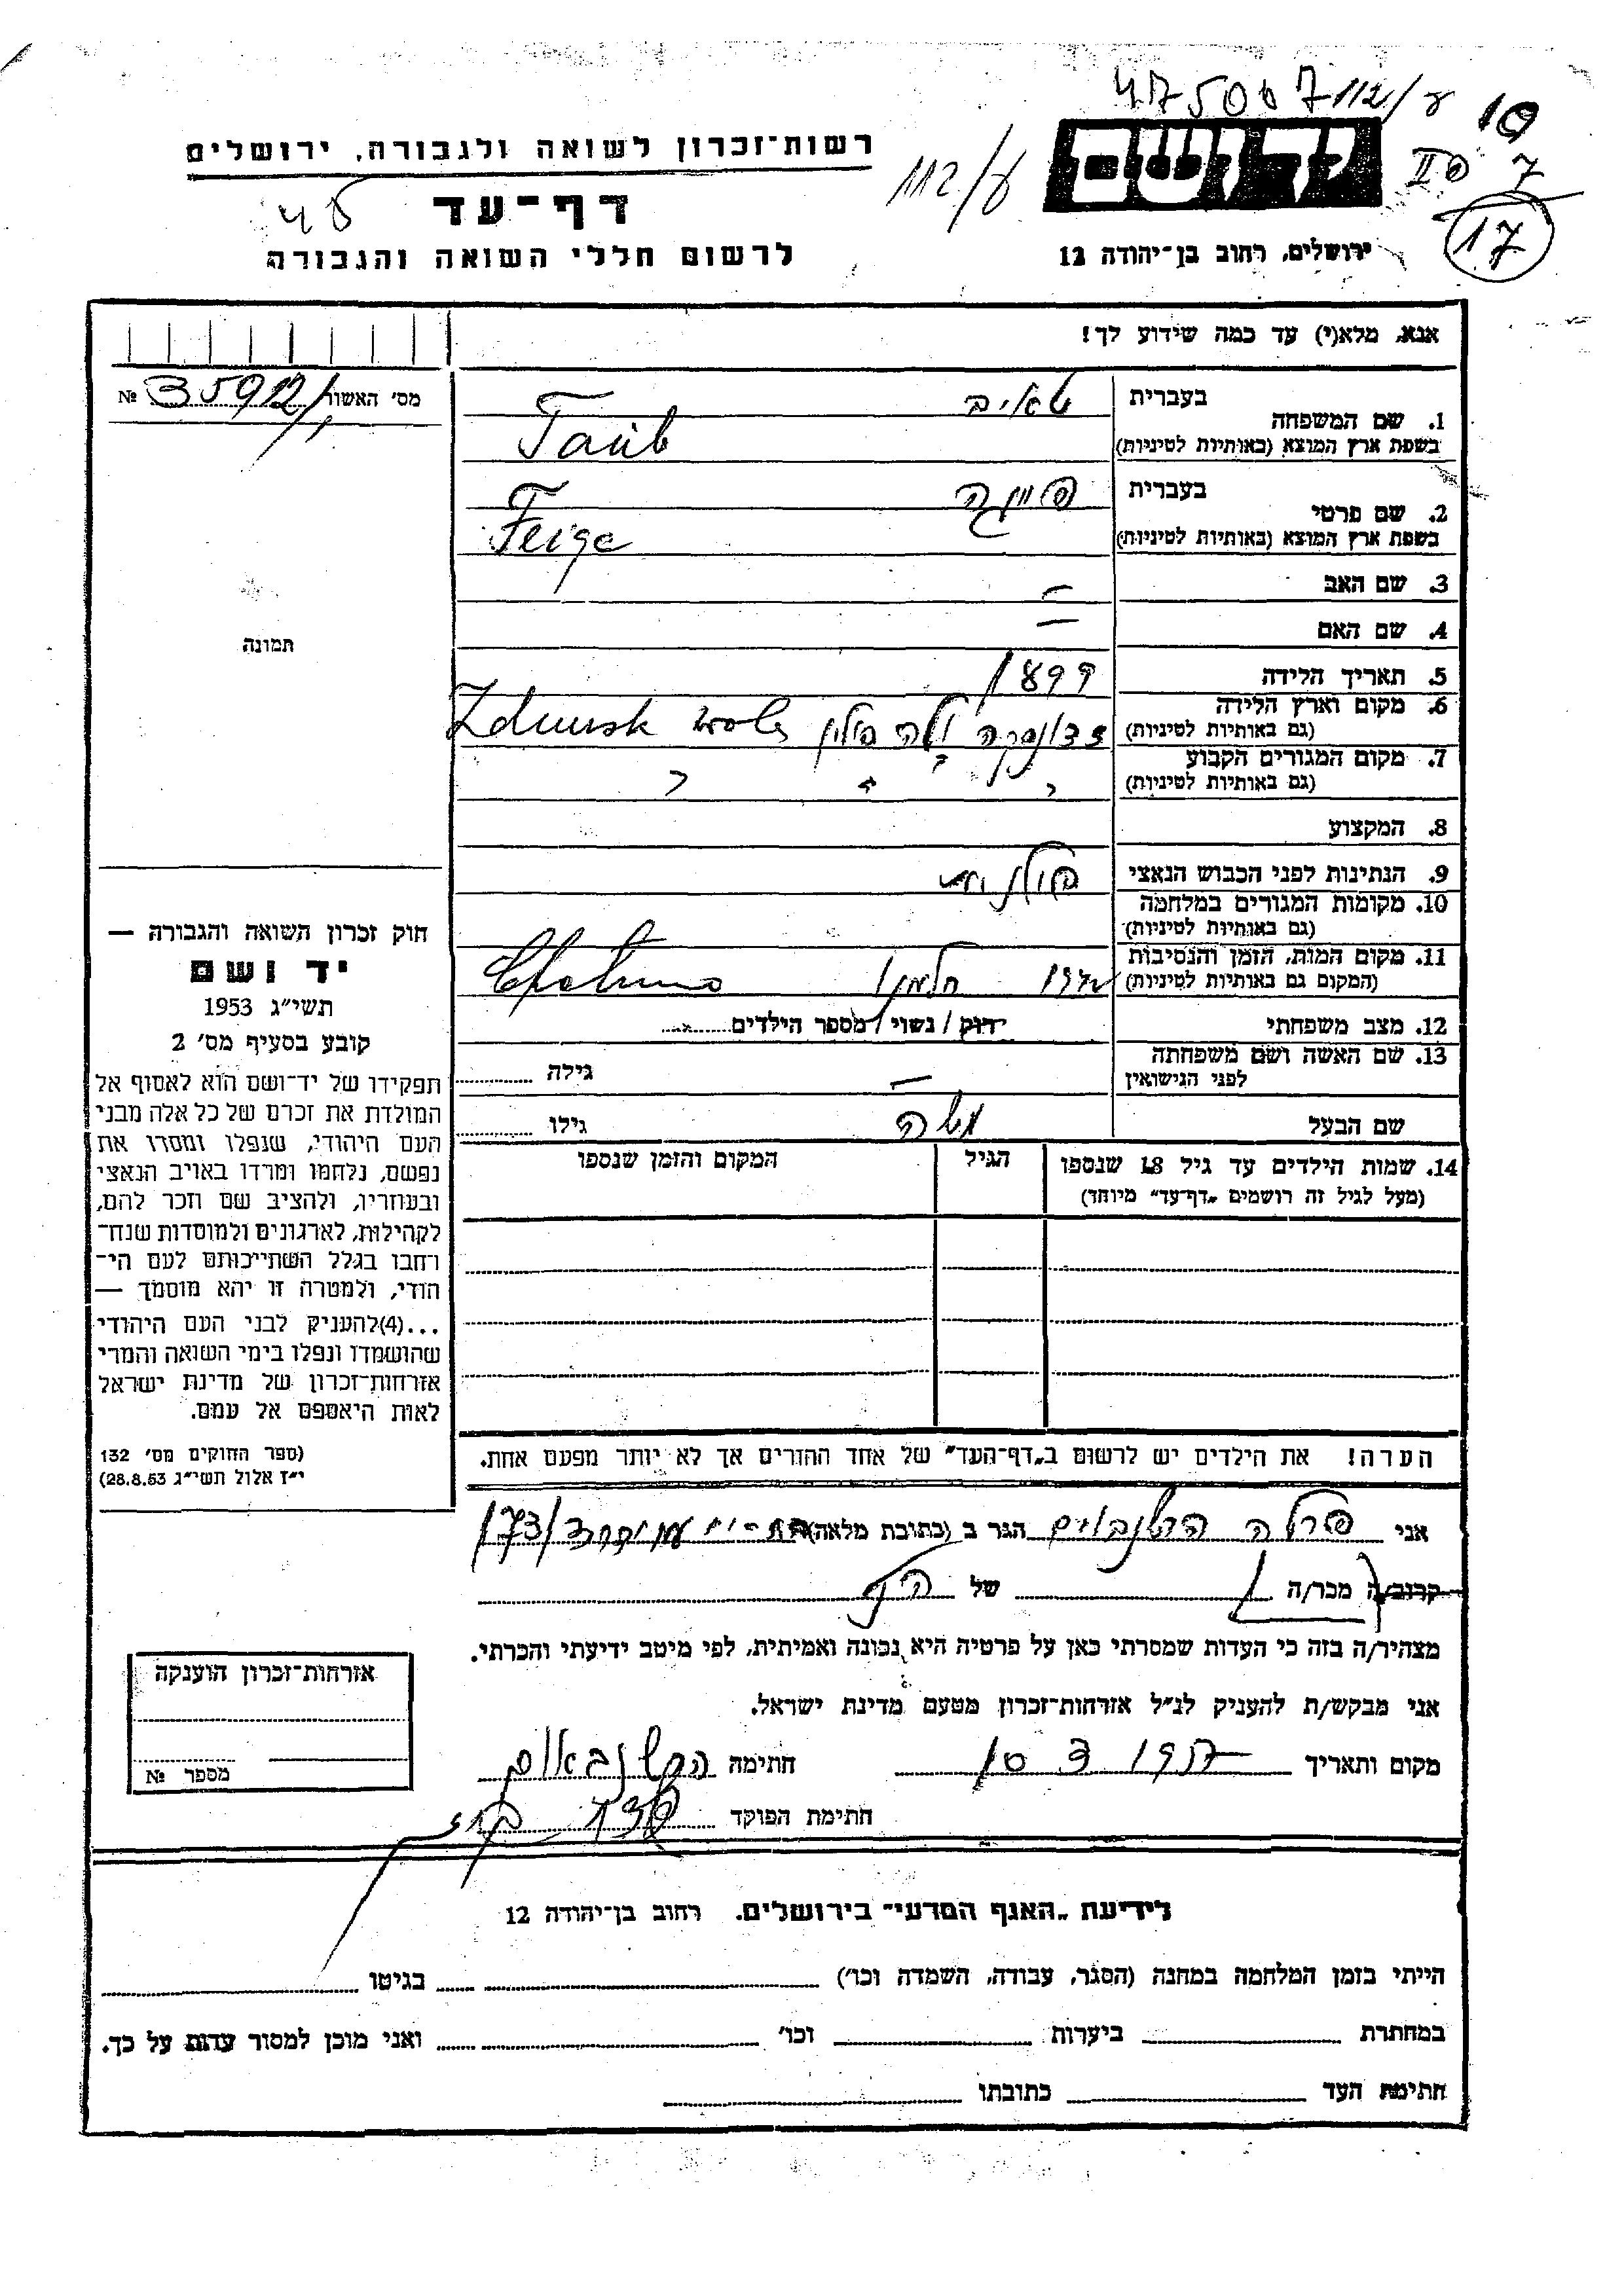 475007
112/ע
10
II פ 7
17
רשות־זכרון לשואה ולגבורה, ירושלים
112/ע
דף־עד
לרשום חללי השואה והגבורה
ירושלים, רחוב בן־יהודה 12
אנא, מלא(י) עד כמה שידוע לך!
מס׳ האשור № 35912
1. שם המשפחה
בעברית טאוב
בשפת ארץ המוצא (באותיות לטיניות) Taub
2. שם פרטי
בעברית פייגה
בשפת ארץ המוצא (באותיות לטיניות) Feige
3. שם האב —
4. שם האם —
תמונה
5. תאריך הלידה 1899
6. מקום וארץ הלידה (גם באותיות לטיניות) זדונסקה וולה פולין Zdunsk
7. מקום המגורים הקבוע (גם באותיות לטיניות)
8. המקצוע
9. הנתינות לפני הכבוש הנאצי פולנית
10. מקומות המגורים במלחמה (גם באותיות לטיניות)
11. מקום המות, הזמן והנסיבות (המקום גם באותיות לטיניות) חלמנו
12. מצב משפחתי רווק / נשוי / מספר הילדים
13. שם האשה ושם משפחתה לפני הנישואין — גילה
שם הבעל משה גילו
14. שמות הילדים עד גיל 18 שנספו הגיל המקום והזמן שנספו
(מעל לגיל זה רושמים „דף־עד״ מיוחד)
חוק זכרון השואה והגבורה —
יד ושם
תשי״ג 1953
קובע בסעיף מס׳ 2
תפקידו של יד־ושם הוא לאסוף אל
המולדת את זכרם של כל אלה מבני
העם היהודי, שנפלו ומסרו את
נפשם, נלחמו ומרדו באויב הנאצי
ובעוזריו, ולהציב שם וזכר להם,
לקהילות, לארגונים ולמוסדות שנח־
רבו בגלל השתייכותם לעם הי־
הודי, ולמטרה זו יהא מוסמך —
...(4)להעניק לבני העם היהודי
שהושמדו ונפלו בימי השואה והמרי
אזרחות־זכרון של מדינת ישראל
לאות היאספם אל עמם.
(ספר החוקים מס׳ 132
י״ז אלול תשי״ג 28.8.53)
הערה! את הילדים יש לרשום ב„דף־העד״ של אחד ההורים אך לא יותר מפעם אחת.
אני פרלה הרשנבוים הגר ב (כתובת מלאה)
קרוב/ה מכר/ה של
מצהיר/ה בזה כי העדות שמסרתי כאן על פרטיה היא נכונה ואמיתית, לפי מיטב ידיעתי והכרתי.
אני מבקש/ת להעניק לנ״ל אזרחות־זכרון מטעם מדינת ישראל.
מקום ותאריך 10 3 1957 חתימה הרשנבאום
חתימת הפוקד
אזרחות־זכרון הוענקה
מספר №
לידיעת „האגף המדעי״ בירושלים. רחוב בן־יהודה 12
הייתי בזמן המלחמה במחנה (הסגר, עבודה, השמדה וכו׳) בגיטו
במחתרת ביערות וכו׳ ואני מוכן למסור עדות על כך.
חתימת העד כתובתו